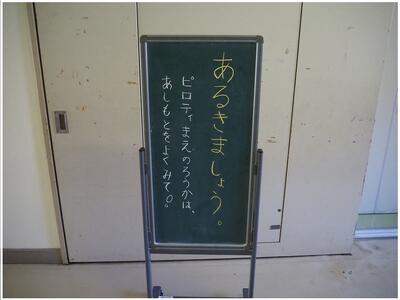 あるきましょう。
ピロティまえのろうかは、
あしもとをよくみて。